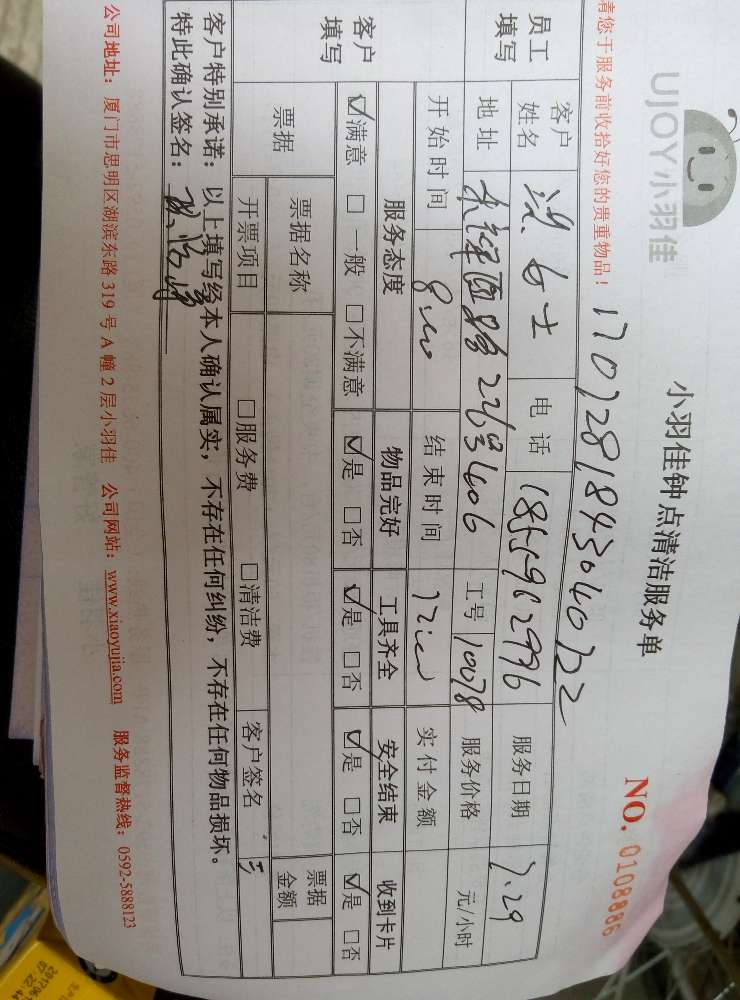 UJOY小羽佳
小羽佳钟点清洁服务单
NO. 0108886
请您于服务前收拾好您的贵重物品！
员工填写
客户姓名 女士 电话 18559612996 服务日期 7.29
地址 工号 10078 服务价格 元/小时
开始时间 结束时间 实付金额
客户填写
服务态度 物品完好 工具齐全 安全结束 收到卡片
☑满意 □一般 □不满意 ☑是 □否 ☑是 □否 ☑是 □否 ☑是 □否
票据 票据名称 票据金额
开票项目 □服务费 □清洁费 客户签名
客户特别承诺：以上填写经本人确认属实，不存在任何纠纷，不存在任何物品损坏。
特此确认签名：
公司地址：厦门市思明区湖滨东路 319 号 A 幢 2 层小羽佳 公司网站：www.xiaoyujia.com 服务监督热线：0592-5888123